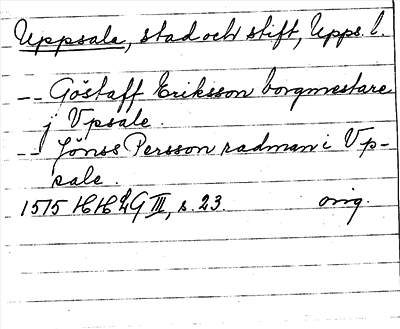 Uppsala, stad och stift, Upps. l.
-- Göstaff Eriksson borgmestare
j Vpsale.
-- Jönss Persson radman i Vp-
sale.
1515 HHLG III, s. 23. orig.